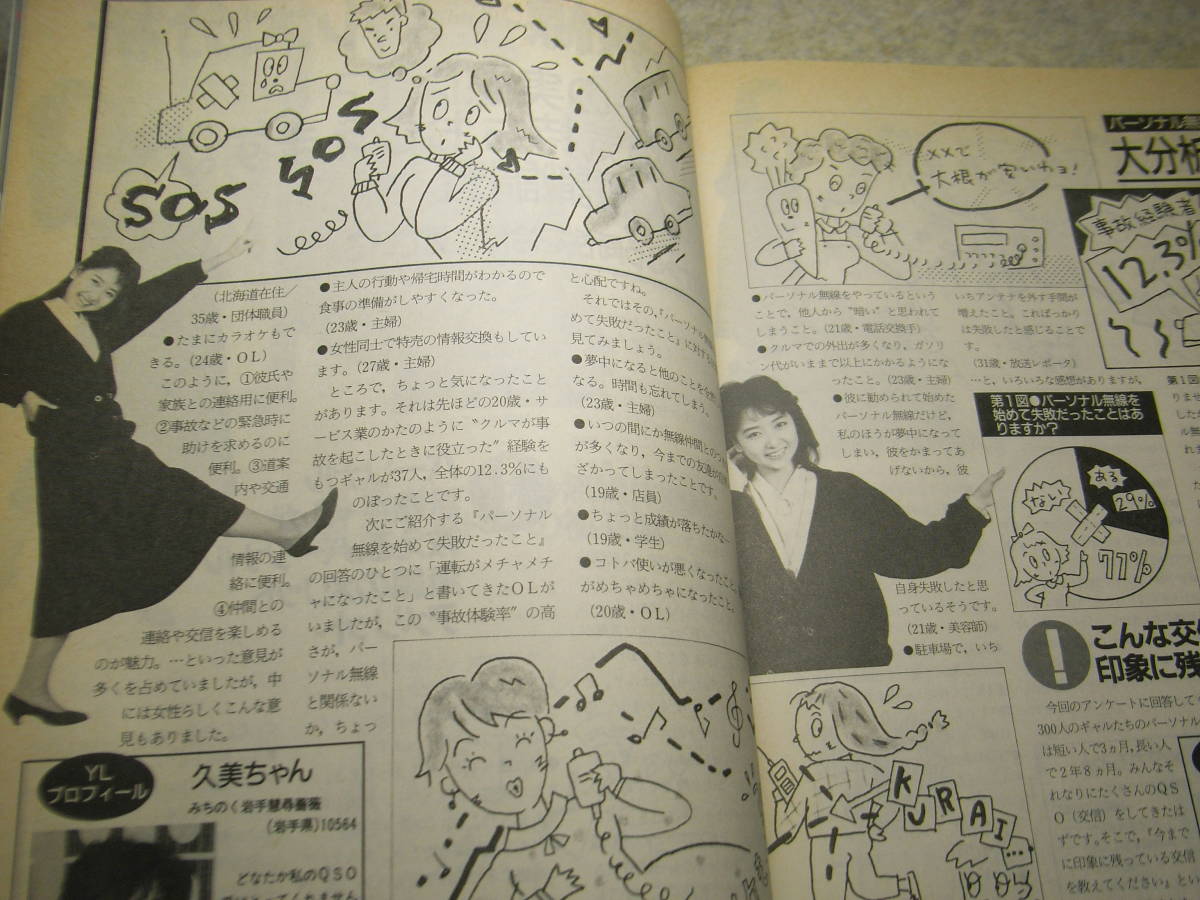 SOS
(北海道在住/
35歳・団体職員)
●たまにカラオケもで
きる。(24歳・OL)
このように，①彼氏や
家族との連絡用に便利。
②事故などの緊急時に
助けを求めるのに
便利。③道案
内や交通
情報の連
絡に便利。
④仲間との
連絡や交信を楽しめる
のが魅力。…といった意見が
多くを占めていましたが，中
には女性らしくこんな意
見もありました。
●主人の行動や帰宅時間がわかるので
食事の準備がしやすくなった。
(23歳・主婦)
●女性同士で特売の情報交換もしてい
ます。(27歳・主婦)
ところで，ちょっと気になったこと
があります。それは先ほどの20歳・サ
ービス業のかたのように〝クルマが事
故を起こしたときに役立った〟経験を
もつギャルが37人，全体の12.3%にも
のぼったことです。
次にご紹介する『パーソナル
無線を始めて失敗だったこと』
の回答のひとつに「運転がメチャメチ
ャになったこと」と書いてきたOLが
いましたが，この〝事故体験率〟の高
さが，パー
ソナル無線
と関係ない
か，ちょっ
と心配ですね。
それではその，『パーソナル
めて失敗だったこと』に対する
見てみましょう。
●夢中になると他のことを
なる。時間も忘れてしまう。
(23歳・主婦)
●いつの間にか無線仲間との
が多くなり，今までの友達が
ざかってしまったことです。
(19歳・店員)
●ちょっと成績が落ちたかな…
(19歳・学生)
●コトバ使いが悪くなったこと，
がめちゃめちゃになったこと。
(20歳・OL)
YL
プロフィール
久美ちゃん
みちのく岩手慧尋薔薇
(岩手県)10564
どなたか私のQSO
××で
大根が安いわョ!
●パーソナル無線をやっているという
ことで，他人から〝暗い〟と思われて
しまうこと。(21歳・電話交換手)
●クルマでの外出が多くなり，ガソリ
ン代がいままで以上にかかるようにな
ったこと。(23歳・主婦)
●彼に勧められて始めた
パーソナル無線だけど，
私のほうが夢中になって
しまい，彼をかまってあ
げないから，彼
自身失敗したと思
っているそうです。
(21歳・美容師)
●駐車場で，いち
いちアンテナを外す手間が
増えたこと。こればっかり
は失敗したと感じることで
す。
(31歳・放送レポータ)
…と，いろいろな感想がありますが，
第1図●パーソナル無線を
始めて失敗だったことはあ
りますか?
ない
ある
29%
77%
パーソナル無
大分析
事故経験者
12.3%
第1図
りませ
した
ル無
れま
KURAI
!
こんな交信
印象に残
今回のアンケートに回答して
300人のギャルたちのパーソナル
は短い人で3ヵ月，長い人
で2年8ヵ月。みんなそ
れなりにたくさんのQS
O（交信）をしてきたは
ずです。そこで，『今まで
に印象に残っている交信
を教えてください』とい